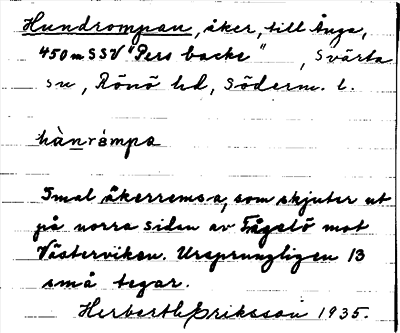 Hundrompan, åker, till Ånga,
450 m SSV "Pers backe", Svärta
sn, Rönö hd, Söderm. l.
hànrómpa
Smal åkerremsa, som skjuter ut
på norra sidan av Fågelö mot
Västerviken. Ursprungligen 13
små tegar.
Herbert Eriksson 1935.